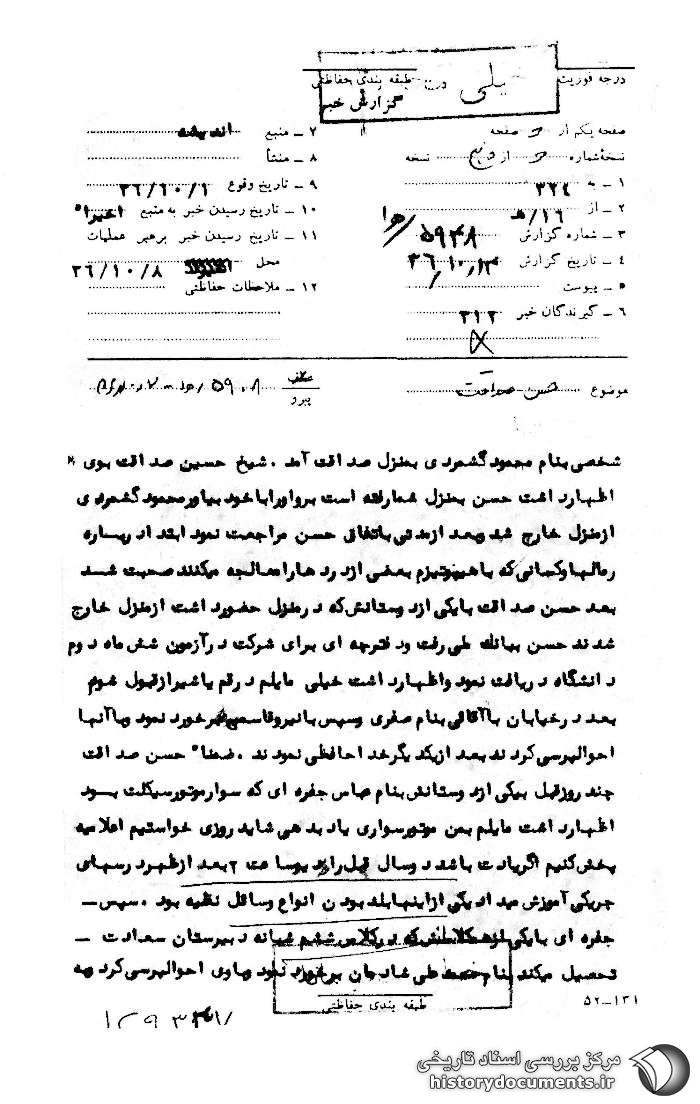 درجه فوریت
طبقه بندی حفاظتی
خیلی
گزارش خبر
صفحه یکم از صفحه
نسخه شماره از نسخه
۱ ـ به ۳۲۴
۲ ـ از ۱۶/هـ
۳ ـ شماره گزارش ۵۹۴۸
۴ ـ تاریخ گزارش ۳۶/۱۰/۱۳
۵ ـ پیوست
۶ ـ گیرندگان خبر ۳۱۲
۷ ـ منبع اندیشه
۸ ـ منشأ
۹ ـ تاریخ وقوع ۳۶/۱۰/۱
۱۰ ـ تاریخ رسیدن خبر به منبع اخیراً
۱۱ ـ تاریخ رسیدن خبر برهبر عملیات
محل ۳۶/۱۰/۸
۱۲ ـ ملاحظات حفاظتی
موضوع حسن صداقت
پیرو
شخصی بنام محمود گشمردی بمنزل صداقت آمد . شیخ حسین صداقت بوی
اظهارداشت حسن بمنزل شمارفته است برو اورا با خود بیاور محمود گشمردی
ازمنزل خارج شد وبعد ازمدتی باتفاق حسن مراجعت نمود ابتدا درباره
رمالها وکسانی که باهیپنوتیزم بعضی ازدردهارامعالجه میکنند صحبت شد
بعد حسن صداقت بایکی ازدوستانش که درمنزل حضورداشت ازمنزل خارج
شدند حسن ببانک ملی رفت ودفترچه ای برای شرکت درآزمون شش ماه دوم
دانشگاه دریافت نمود واظهارداشت خیلی مایلم درقم یاشیرازقبول شوم
بعد درخیابان باآقائی بنام صفری وسپس بانیروقاسمی برخورد نمود وباآنها
احوالپرسی کردند بعد ازیکدیگرخداحافظی نمودند . ضمناً حسن صداقت
چند روزقبل بیکی ازدوستانش بنام عباس جفره ای که سوارموتورسیکلت بود
اظهارداشت مایلم بمن موتورسواری یاد بدهی شاید روزی خواستیم اعلامیه
پخش کنیم اگریادت باشد درسال قبل رادیو ساعت ۲ بعد ازظهر درسهای
چریکی آموزش میداد یکی ازاینها بلد بودن انواع وسائل نقلیه بود . سپس ـ
جفره ای بایکی ازهمکلاسش که درکلاس ششم شبانه دبیرستان سعادت ـ
تحصیل میکند بنام علی شادمان برخورد نمود وباوی احوالپرسی کرد وبه
طبقه بندی حفاظتی
۱۳۱ـ۵۲
مرکز بررسی اسناد تاریخی
historydocuments.ir